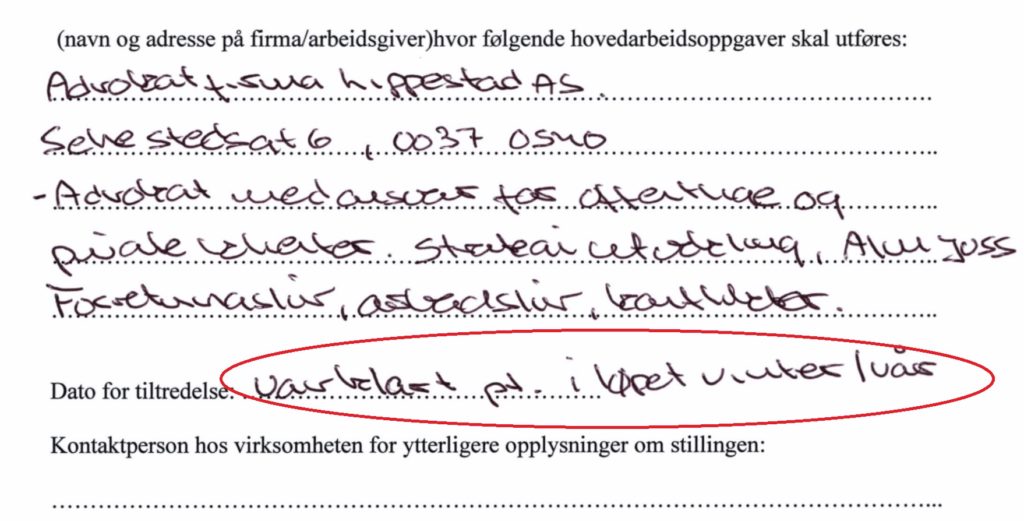 (navn og adresse på firma/arbeidsgiver)hvor følgende hovedarbeidsoppgaver skal utføres:
Advokatfirma Lippestad AS.
Sehestedsgt 6, 0037 OSLO
- Advokat med ansvar for offentlige og
private klienter. Strategi utvikling, Alm juss
Forretningsliv, arbeidsliv, konflikter.
Dato for tiltredelse: uavklart pt. i løpet vinter/vår
Kontaktperson hos virksomheten for ytterligere opplysninger om stillingen: